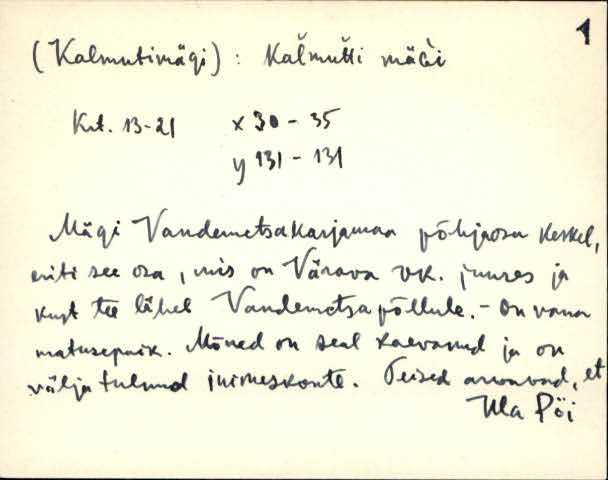 1
(Kalmutimägi) : Kalmutti mäGi
Krt. 13-21 x 30 - 35
y 131 - 131
Mägi Vandemetsa karjamaa põhjaosa keskel,
eriti see osa, mis on Värava vk. juures ja
kust tee läheb Vandemetsa põllule. - On vana
matusepaik. Mõned on seal kaevanud ja on
välja tulnud inimeskonte. Teised arvavad, et
Ula Pöi